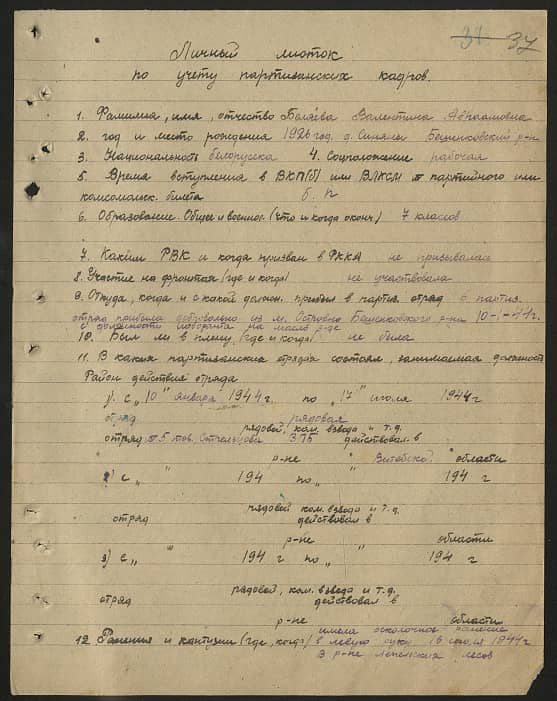 37
Личный листок
по учету партизанских кадров.
1. Фамилия, имя, отчество Беляева Валентина Абрамовна
2. год и место рождения 1926 год. д. Синяны Бешенковский р-н
3. Национальность белорусска 4. Соцположение рабочая
5. Время вступления в ВКП(б) или ВЛКСМ № партийного или
комсомольск. билета б. п
6. Образование. Общее и военное. (что и когда оконч.) 7 класов
7. Каким РВК и когда призван в РККА не призывалась
8. Участие на фронтах (где и когда) не участвовала
9. Откуда, когда и с какой должн. прибыл в партиз. отряд В партиз.
отряд прибыла добровольно из м. Островно Бешенковского р-на 10-1-44г.
с должности лаборанта на масло з-де
10. Был ли в плену (где и когда) не была
11. В каких партизанских отрядах состоял, занимаемая должность
Район действия отряда
1) с „10" января 1944г по „17" июля 1944г
отряд рядовая
рядовой, ком. взвода и т.д.
отряд № 5 тов. Стрельцова действовал в
р-не Витебской области
2) с „ " 194 по „ " 194 г
рядовой ком. взвода и т.д.
отряд действовал в
р-не области
3) с „ " 194 г по „ " 194 г
рядовой, ком. взвода и т.д.
отряд действовал в
р-не области
12. Ранения и контузии (где, когда) имела осколочное ранение
в левую руку 16 1944г.
в р-не Лепельских лесов